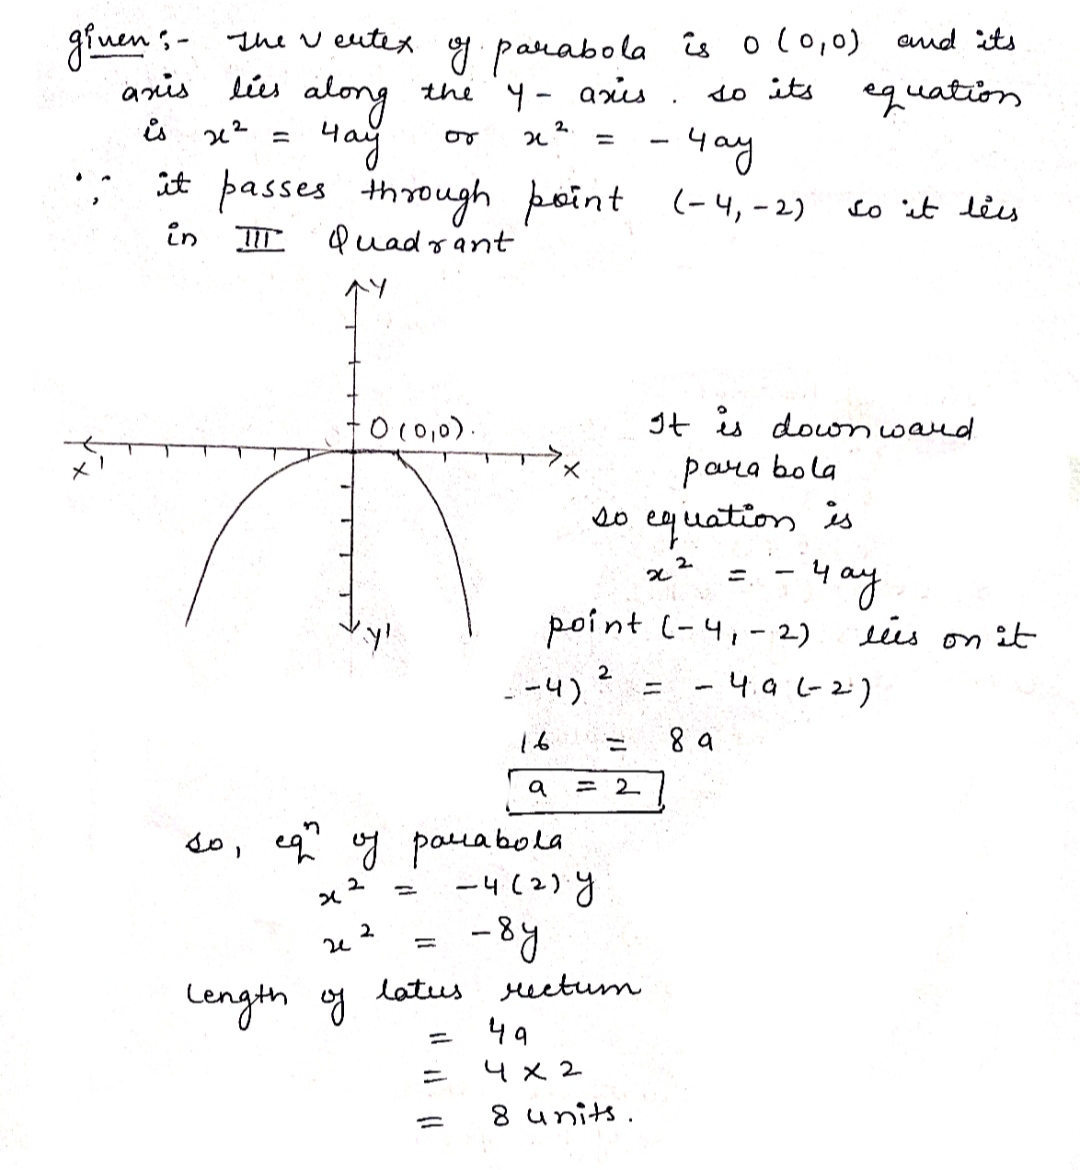 given :- The vertex of parabola is O (0,0) and its
axis lies along the y - axis . so its equation
is x² = 4ay or x² = - 4ay
∵ it passes through point (-4, -2) so it lies
in III Quadrant
Y
O (0,0).
X'
X
Y'
It is downward
parabola
so equation is
x² = - 4ay
point (-4, -2) lies on it
-4)² = - 4.a (-2)
16 = 8a
a = 2
so, eqⁿ of parabola
x² = -4(2)y
x² = -8y
Length of latus rectum
= 4a
= 4 × 2
= 8 units.